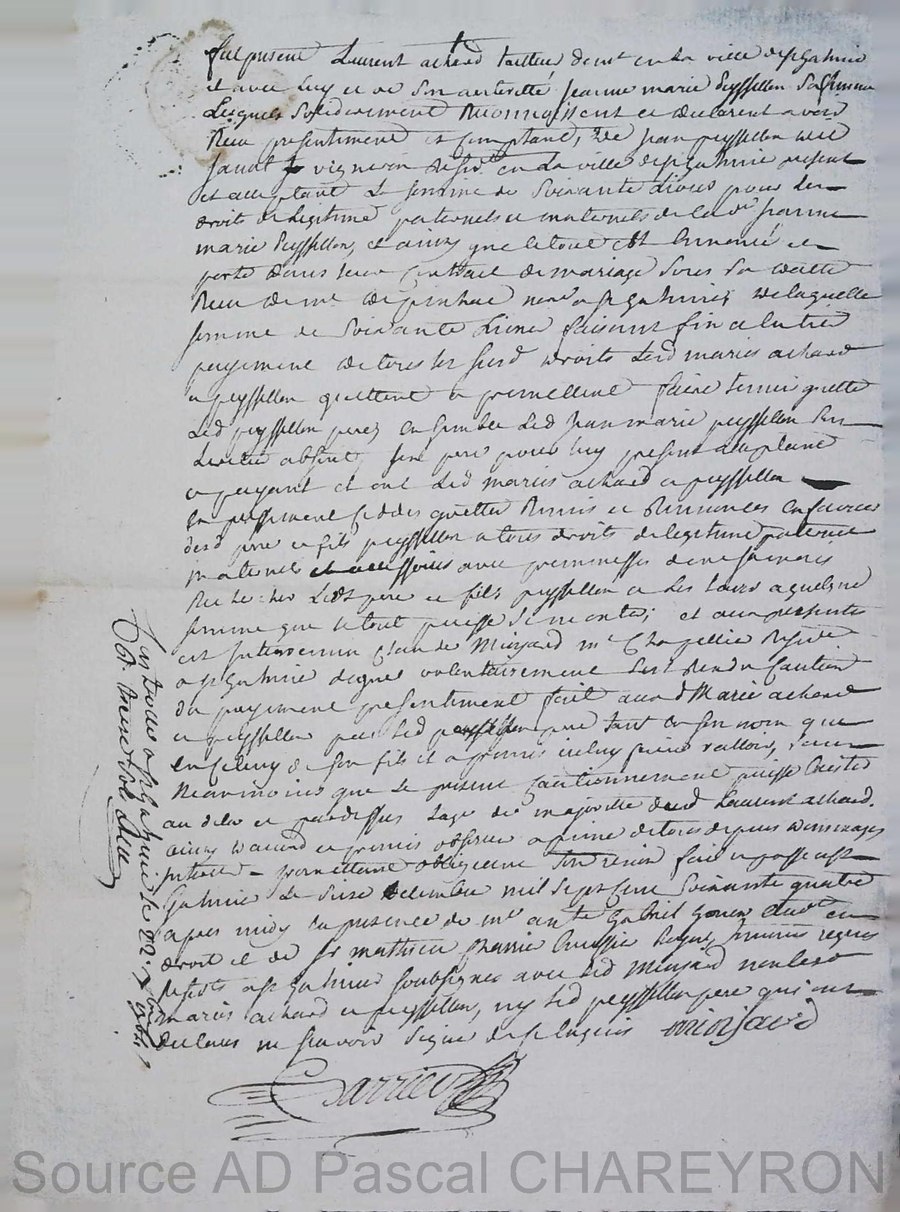 fut present Laurent achard tailleur demt en la ville de st galmier
et avec luy et de son authorité Jeanne marie peyssellon sa femme
Lesquels solidairement Reconnoissent et declarent avoir
Receu presentement et comptant, de Jean peyssellon
vigneron Resid. en la ville de st galmier present
et acceptant La somme de soixante livres pour les
droits de legitime paternels et maternels de lad. Jeanne
marie Peyssellon, et ainsy que le tout est Ennoncé et
porté dans leur contrat de mariage sous sa datte
Receu de me nore a st galmier, de laquelle
somme de soixante Livres faisant fin et entier
payement de tous les susd droits Lesd mariés achard
et peyssellon quittent et promettent faire tenir quitte
Led peyssellon pere, ensemble Led Jean marie peyssellon son
absent, sond pere pour luy present
et payant et ont Lesd mariés achard et peyssellon
quitté Remis et Renoncés en faveur
desd pere et fils peyssellon a tous droits de legitime paternel
maternel et accessoires avec promesses de ne jamais
Rechercher Lesd pere et fils peyssellon et les leurs a quelque
somme que le tout puisse se monter; et aux presentes
est intervenu Claude Mionjard me Chapellier Reside
a st galmier Lequel volontairement s'est Rendu Caution
du payement presentement fait auxd Mariés achard
et peyssellon par led peyssellon pere tant en son nom que
en celuy de son fils et a promis iceluy faire valloir, sans
Neanmoins que le present Cautionnement puisse
au dela et pardessus l'age de majorité dud Laurent achard.
ainsy accord et promis observer a peine de tous depens dommages
interets - promettant obligeant Renon fait et passé a st
Galmier Le seize decembre mil sept cent soixante quatre
apres midy en presence de me gabriel en
droit et de sr mathieu
Reside a st galmier soubsignés avec Led Mionjard non lesd
mariés achard et peyssellon, ny led peyssellon pere qui ont
declaré ne scavoir signer de ce Enquis mionjard
Barrieu
Controllé a st galmier le 22. xbre 1764
Source AD Pascal CHAREYRON